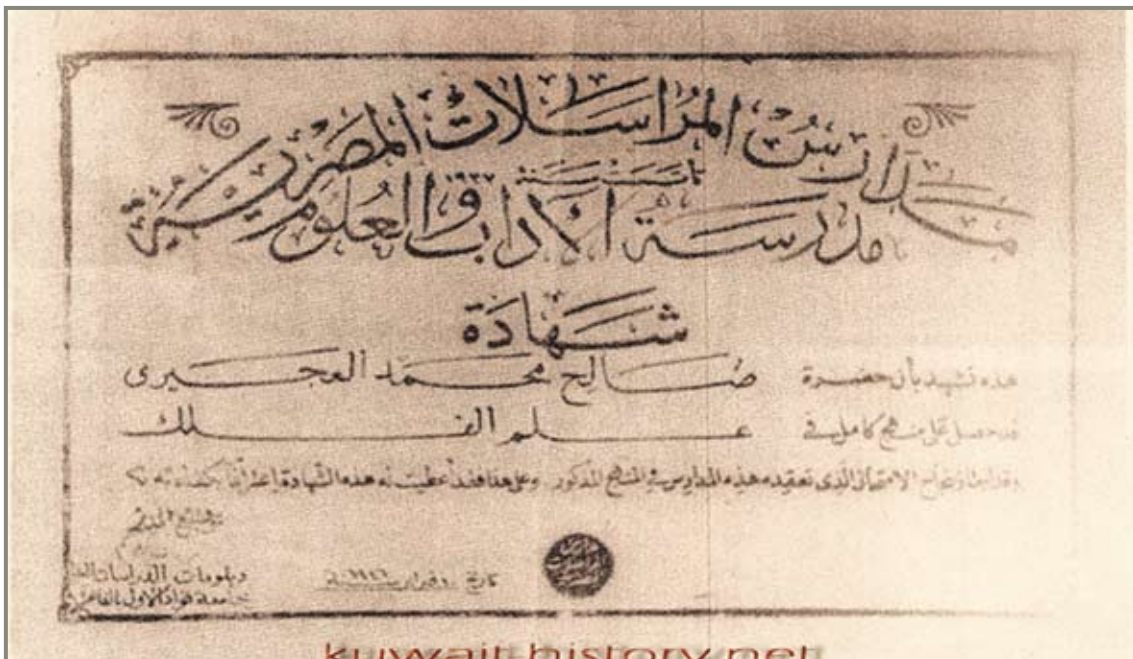 مَدَارسُ المُرَاسَلات المصرية
تأسست سنة ١٩٣٧
مدرسة الآداب والعلوم
شهادة
هذه تشهد بأن حضرة صالح محمد العجيرى
قد حصل على منهج كامل في علم الفلك
وقد اجتاز بنجاح الامتحان الذى تعقده هذه المدارس في المنهج المذكور وعلى هذا فقد أعطيت له هذه الشهادة إعترافا بكفاءته
تاريخ فبراير ١٩٤٦
دبلومات الدراسات
جامعة فؤاد الاول بالقاهرة
kuwait-history.net